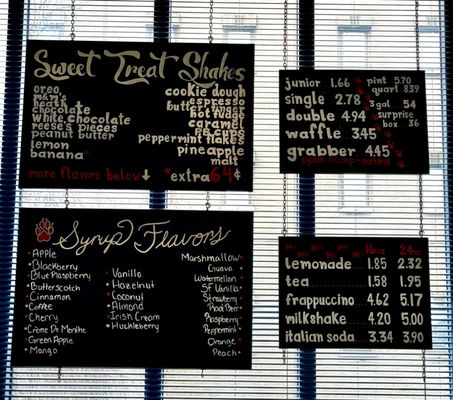 Sweet Treat Shakes
oreo
m&m's
heath
chocolate
white chocolate
reese's pieces
peanut butter
lemon
banana
cookie dough
espresso
butterfinger
hot fudge
caramel
PB cups
peppermint flakes
pineapple
malt
more flavors below ↓
*extra 64¢
junior 1.66
single 2.78
double 4.94
waffle 3.45
grabber 4.45
pint 5.70
quart 839
3 gal 54
surprise
box 36
Syrup Flavors
Apple
Blackberry
Blue Raspberry
Butterscotch
Cinnamon
Coffee
Cherry
Crème De Menthe
Green Apple
Mango
Vanilla
Hazelnut
Coconut
Almond
Irish Cream
Huckleberry
Marshmallow
Guava
Watermelon
SF Vanilla
Strawberry
Root Beer
Raspberry
Peppermint
Orange
Peach
16oz 24oz
lemonade 1.85 2.32
tea 1.58 1.95
frappuccino 4.62 5.17
milkshake 4.20 5.00
italian soda 3.34 3.90